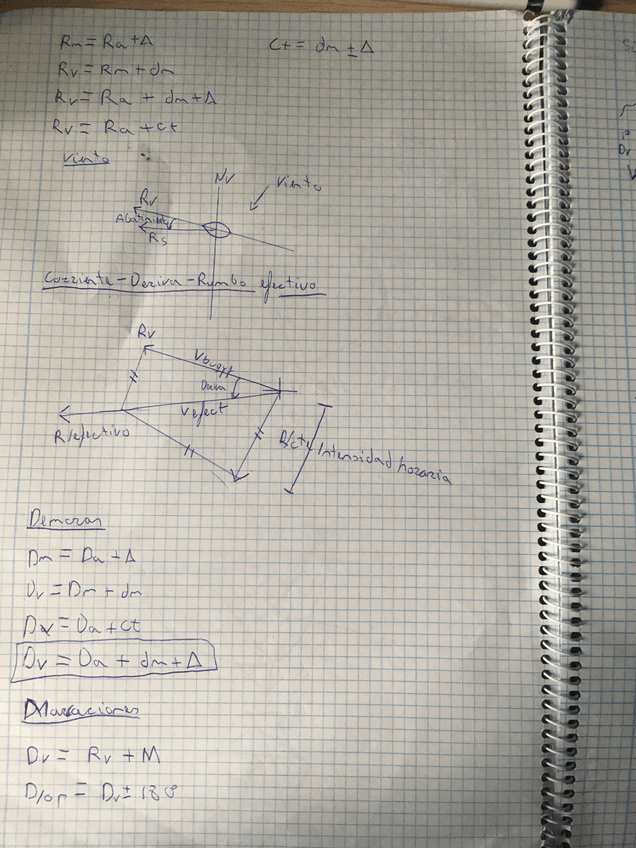 Rm = Ra + Δ
Ct = dm ± Δ
Rv = Rm + dm
Rv = Ra + dm + Δ
Rv = Ra + ct
Viento
Nv
Viento
Rv
Abatimiento
Rs
Corriente - Deriva - Rumbo efectivo
Rv
Vbuque
Deriva
Vefect
R/efectivo
R/cte
Intensidad horaria
Demoras
Dm = Da + Δ
Dv = Dm + dm
Dv = Da + ct
Dv = Da + dm + Δ
Marcaciones
Dv = Rv + M
D/op = Dv ± 180
Dv